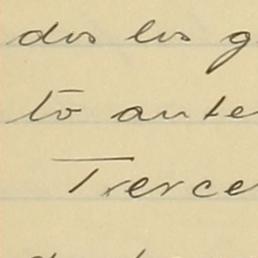 dos los g
tō ante
Terce